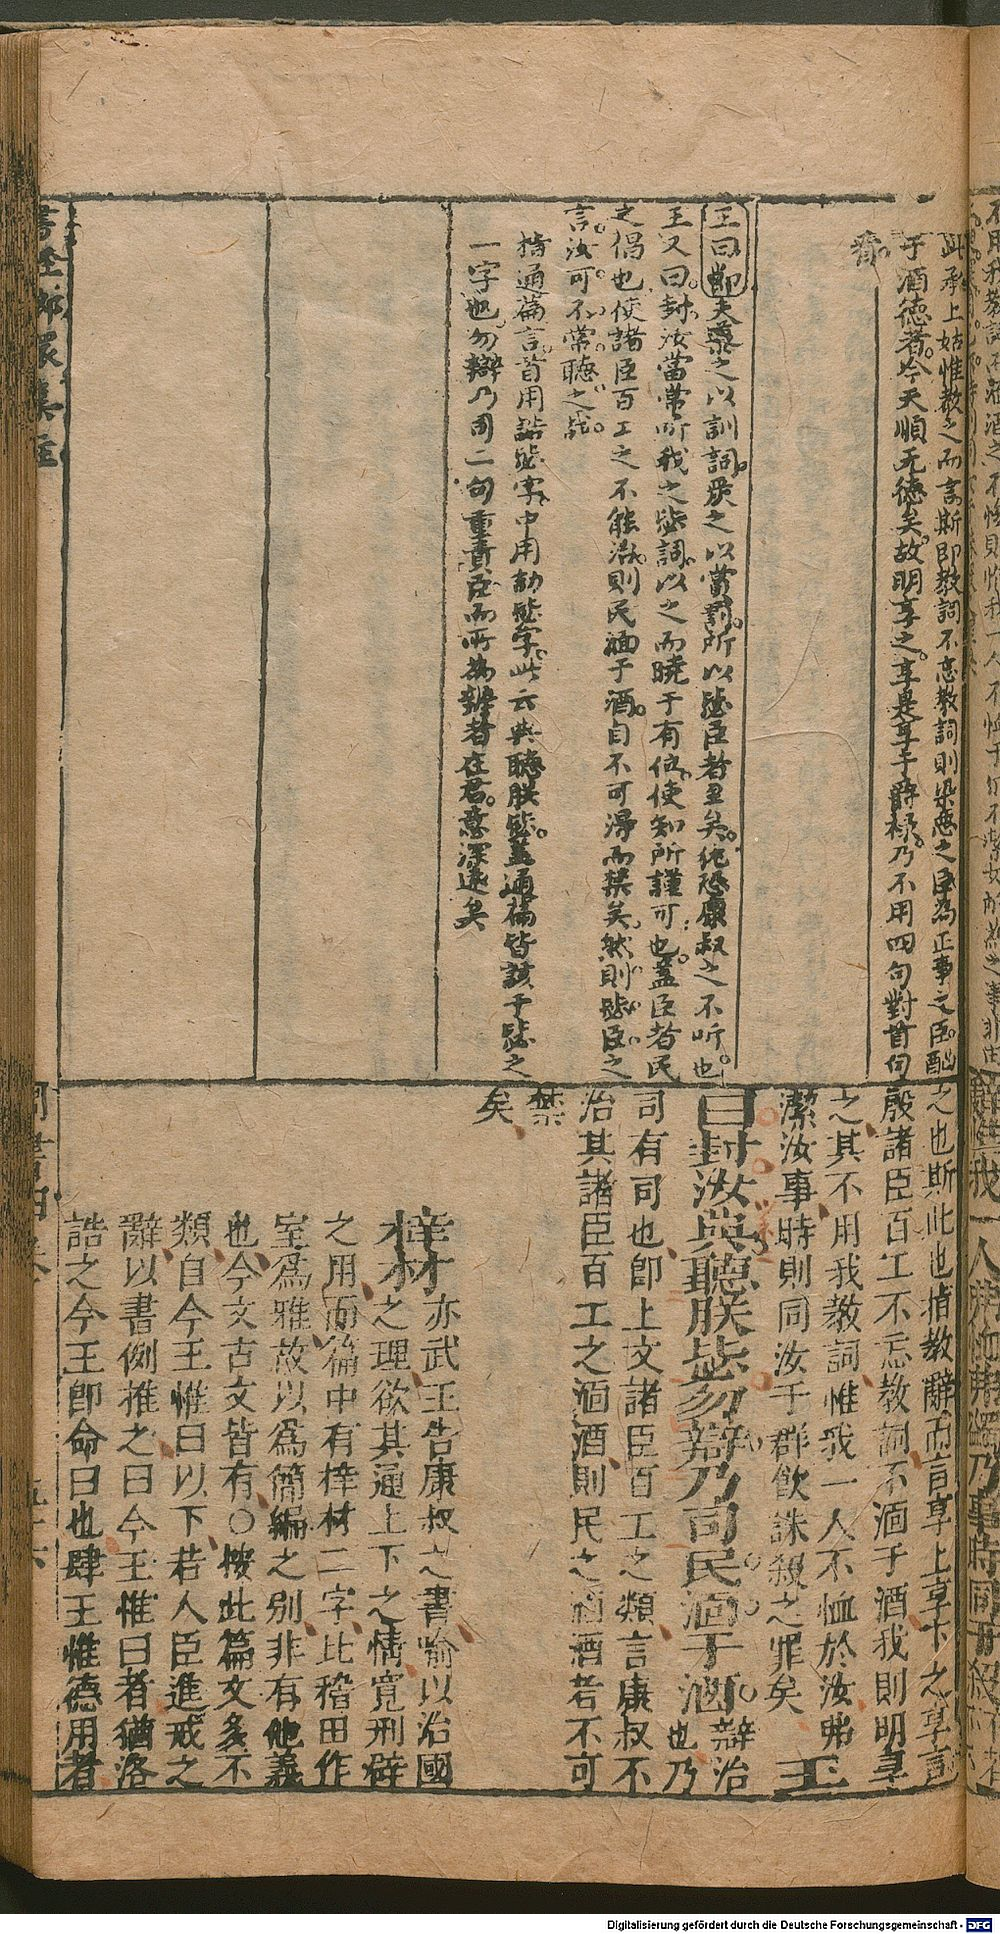 此承上姑惟教之而言斯即教詞不忘教詞則染惡之臣為正事之臣醖
于酒德者今天順无德矣故明享之享是享于爵祿乃不用四句對首句
看
王曰節夫藥之以訓詞眾之以當罰所以毖臣者至矣統恐康叔之不听也
王又曰封汝當常听我之毖詞以之而曉于有位使知所謹可也蓋臣者民
之倡也使諸臣百工之不能治則民湎于酒自不可得而禁矣然則毖臣之
言汝可不常聽之哉
指通篇言首用誥毖字中用劼毖字此云典聽朕毖蓋通篇皆該于毖之
一字也勿辯乃司二句重責臣而所為辯者在君意深遠矣
之也斯此也指教辭而言享上享下之享言
殷諸臣百工不忘教詞不湎于酒我則明享
之其不用我教詞惟我一人不恤於汝弗
潔汝事時則同汝于群飲誅殺之罪矣 王
曰封汝典聽朕毖勿辯乃司民湎于酒 辯治也乃
司有司也即上文諸臣百工之類言康叔不
治其諸臣百工之湎酒則民之湎酒者不可
禁
矣
梓材 亦武王告康叔之書喻以治國
之理欲其通上下之情寬刑辟
之用而篇中有梓材二字比稽田作
室為雅故以為簡編之別非有他義
也今文古文皆有○按此篇文多不
類自今王惟曰以下若人臣進戒之
辭以書例推之曰今王惟曰者猶洛
誥之今王即命曰也肆王惟德用者
周書四
Digitalisierung gefördert durch die Deutsche Forschungsgemeinschaft - DFG